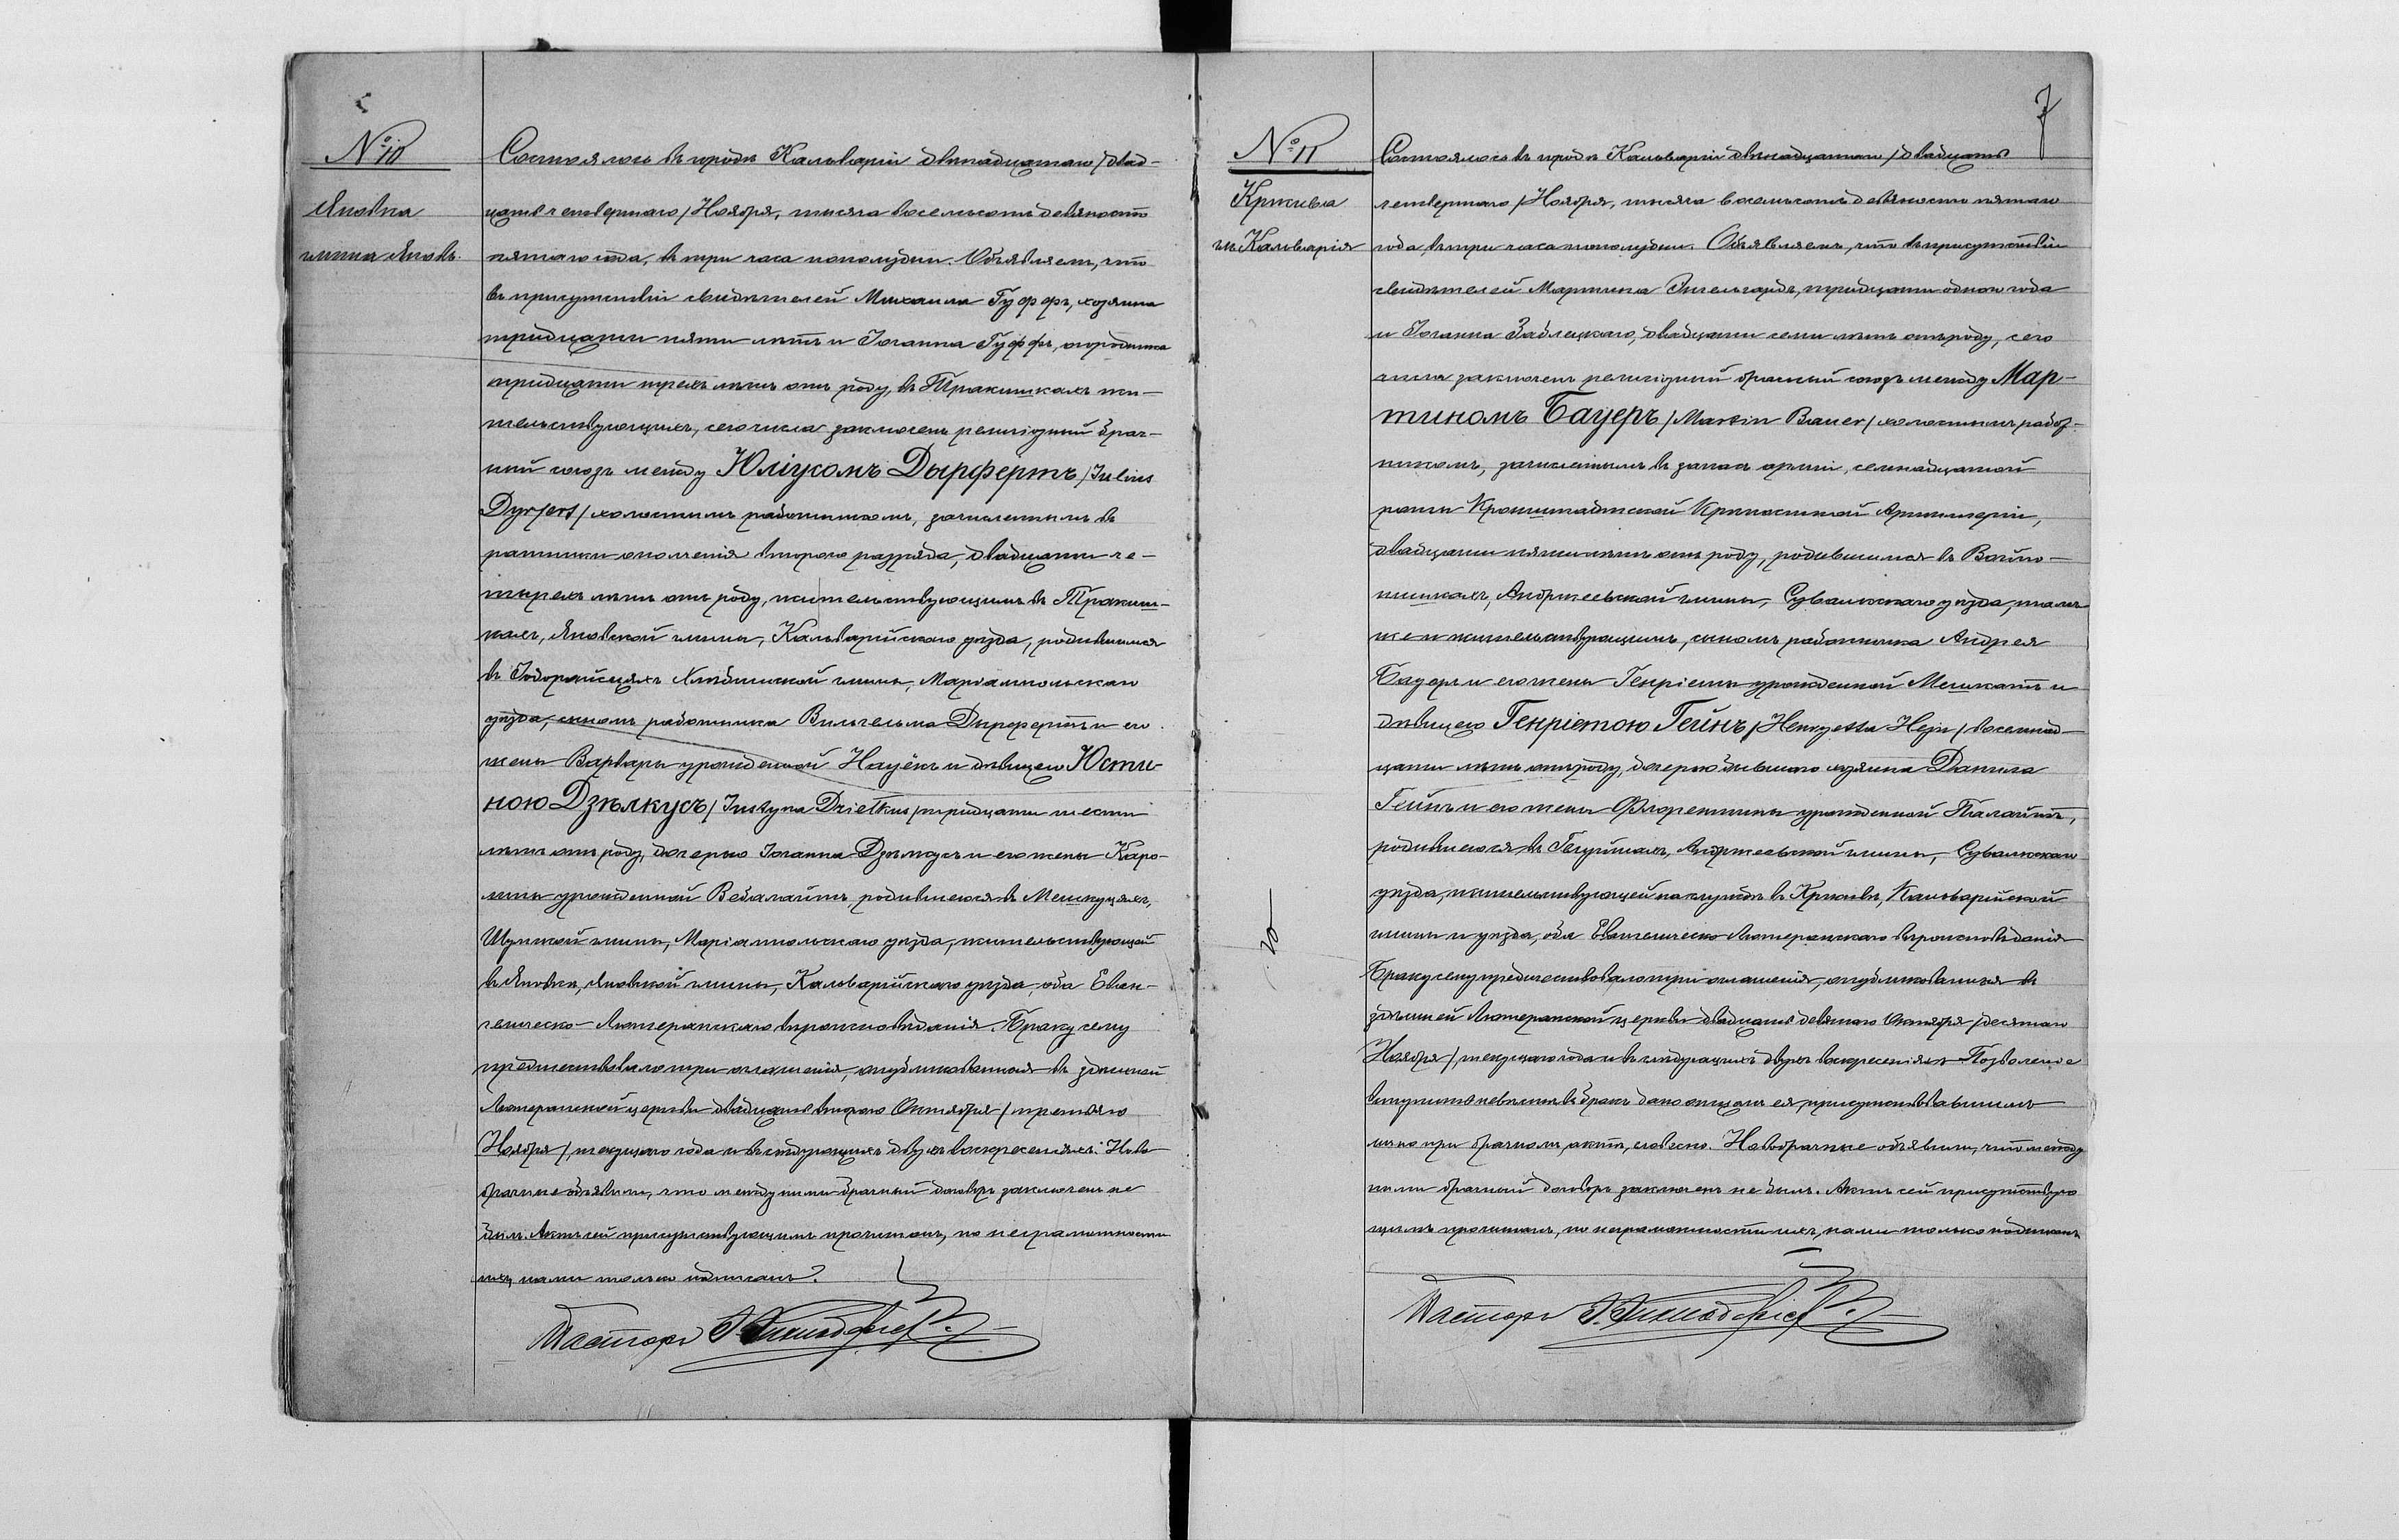 № 10
Яновка
гмина Яновъ.
Состоялось въ городѣ Кальваріи двѣнадцатаго /двад-
цать четвертаго/ Ноября, тысяча восемьсотъ девяносто
пятаго года, въ три часа пополудни. Объявляемъ, что
въ присутствіи свидѣтелей Михаила Гуффъ, хозяина
тридцати пяти лѣтъ и Іоганна Гуффъ, огородника
тридцати трехъ лѣтъ отъ роду, въ Тракишкахъ жи-
тельствующихъ, сего числа заключенъ религіозный брач-
ный союзъ между Юліусомъ Дырфертъ /Julius
Dyrfert/ холостымъ работникомъ, зачисленнымъ въ
ратники ополченія второго разряда, двадцати че-
тырехъ лѣтъ отъ роду, жительствующимъ въ Тракиш-
кахъ, Яновской гмины, Кальварійскаго уѣзда, родившимся
въ Хлѣбишской гмины, Маріампольскаго
уѣзда, сыномъ работника Вильгельма Дырфертъ и его
жены Варвары урожденной Науёкъ и дѣвицею Юсти-
ною Дзѣлкусъ /Justyna Dzietkus/ тридцати шести
лѣтъ отъ роду, дочерью Іоганна Дзѣлкусъ и его жены Каро-
лины урожденной Ведалайтъ, родившеюся въ Мешкуцяхъ,
гмины, Маріампольскаго уѣзда, жительствующей
въ Яновкѣ, Яновской гмины, Кальварійскаго уѣзда, оба Еван-
гелическо-Лютеранскаго вѣроисповѣданія. Браку сему
предшествовало три оглашенія, опубликованныя въ здѣшней
Лютеранской церкви двадцать второго Октября /третьяго
Ноября/ текущаго года и въ слѣдующихъ двухъ воскресеніяхъ. Ново-
брачные объявили, что между ними брачный договоръ заключенъ не
былъ. Актъ сей присутствующимъ прочитанъ, по неграмотности
ихъ нами только подписанъ.
Пасторъ
7
№ 11
Кржива
гм. Кальварія
Состоялось въ городѣ Кальваріи двѣнадцатаго /двадцать
четвертаго/ Ноября, тысяча восемьсотъ девяносто пятаго
года, въ три часа пополудни. Объявляемъ, что въ присутствіи
свидѣтелей Мартина Энгельгардъ, тридцати одного года
и Іоганна Заблецкаго, двадцати семи лѣтъ отъ роду, сего
числа заключенъ религіозный брачный союзъ между Мар-
тиномъ Бауеръ /Martin Bauer/ холостымъ работ-
никомъ, зачисленнымъ въ запасъ арміи, семнадцатой
роты Кронштадтской Крѣпостной Артиллеріи,
двадцати пяти лѣтъ отъ роду, родившимся въ Вайпо-
нишкахъ, Андржеевской гмины, Сувалкскаго уѣзда, тамъ
же и жительствующимъ, сыномъ работника Андрея
Бауеръ и его жены Генріеты урожденной Мешкатъ и
дѣвицею Генріетою Гейнъ /Henryetta Hejn/ восемнад-
цати лѣтъ отъ роду, дочерью бывшаго хозяина Данила
Гейнъ и его жены Флорентины урожденной Палайтъ,
родившеюся въ Андржеевской гмины, Сувалкскаго
уѣзда, жительствующей на службѣ въ Крживѣ, Кальварійской
гмины и уѣзда, оба Евангелическо-Лютеранскаго вѣроисповѣданія
Браку сему предшествовало три оглашенія, опубликованныя въ
здѣшней Лютеранской церкви двадцать девятаго Октября /десятаго
Ноября/ текущаго года и въ слѣдующихъ двухъ воскресеніяхъ. Позволеніе
вступить невѣстѣ въ бракъ дано отцомъ ея, присутствовавшимъ
лично при брачномъ актѣ, словесно. Новобрачные объявили, что между
ними брачный договоръ заключенъ не былъ. Актъ сей присутствую-
щимъ прочитанъ, по неграмотности ихъ, нами только подписанъ
Пасторъ